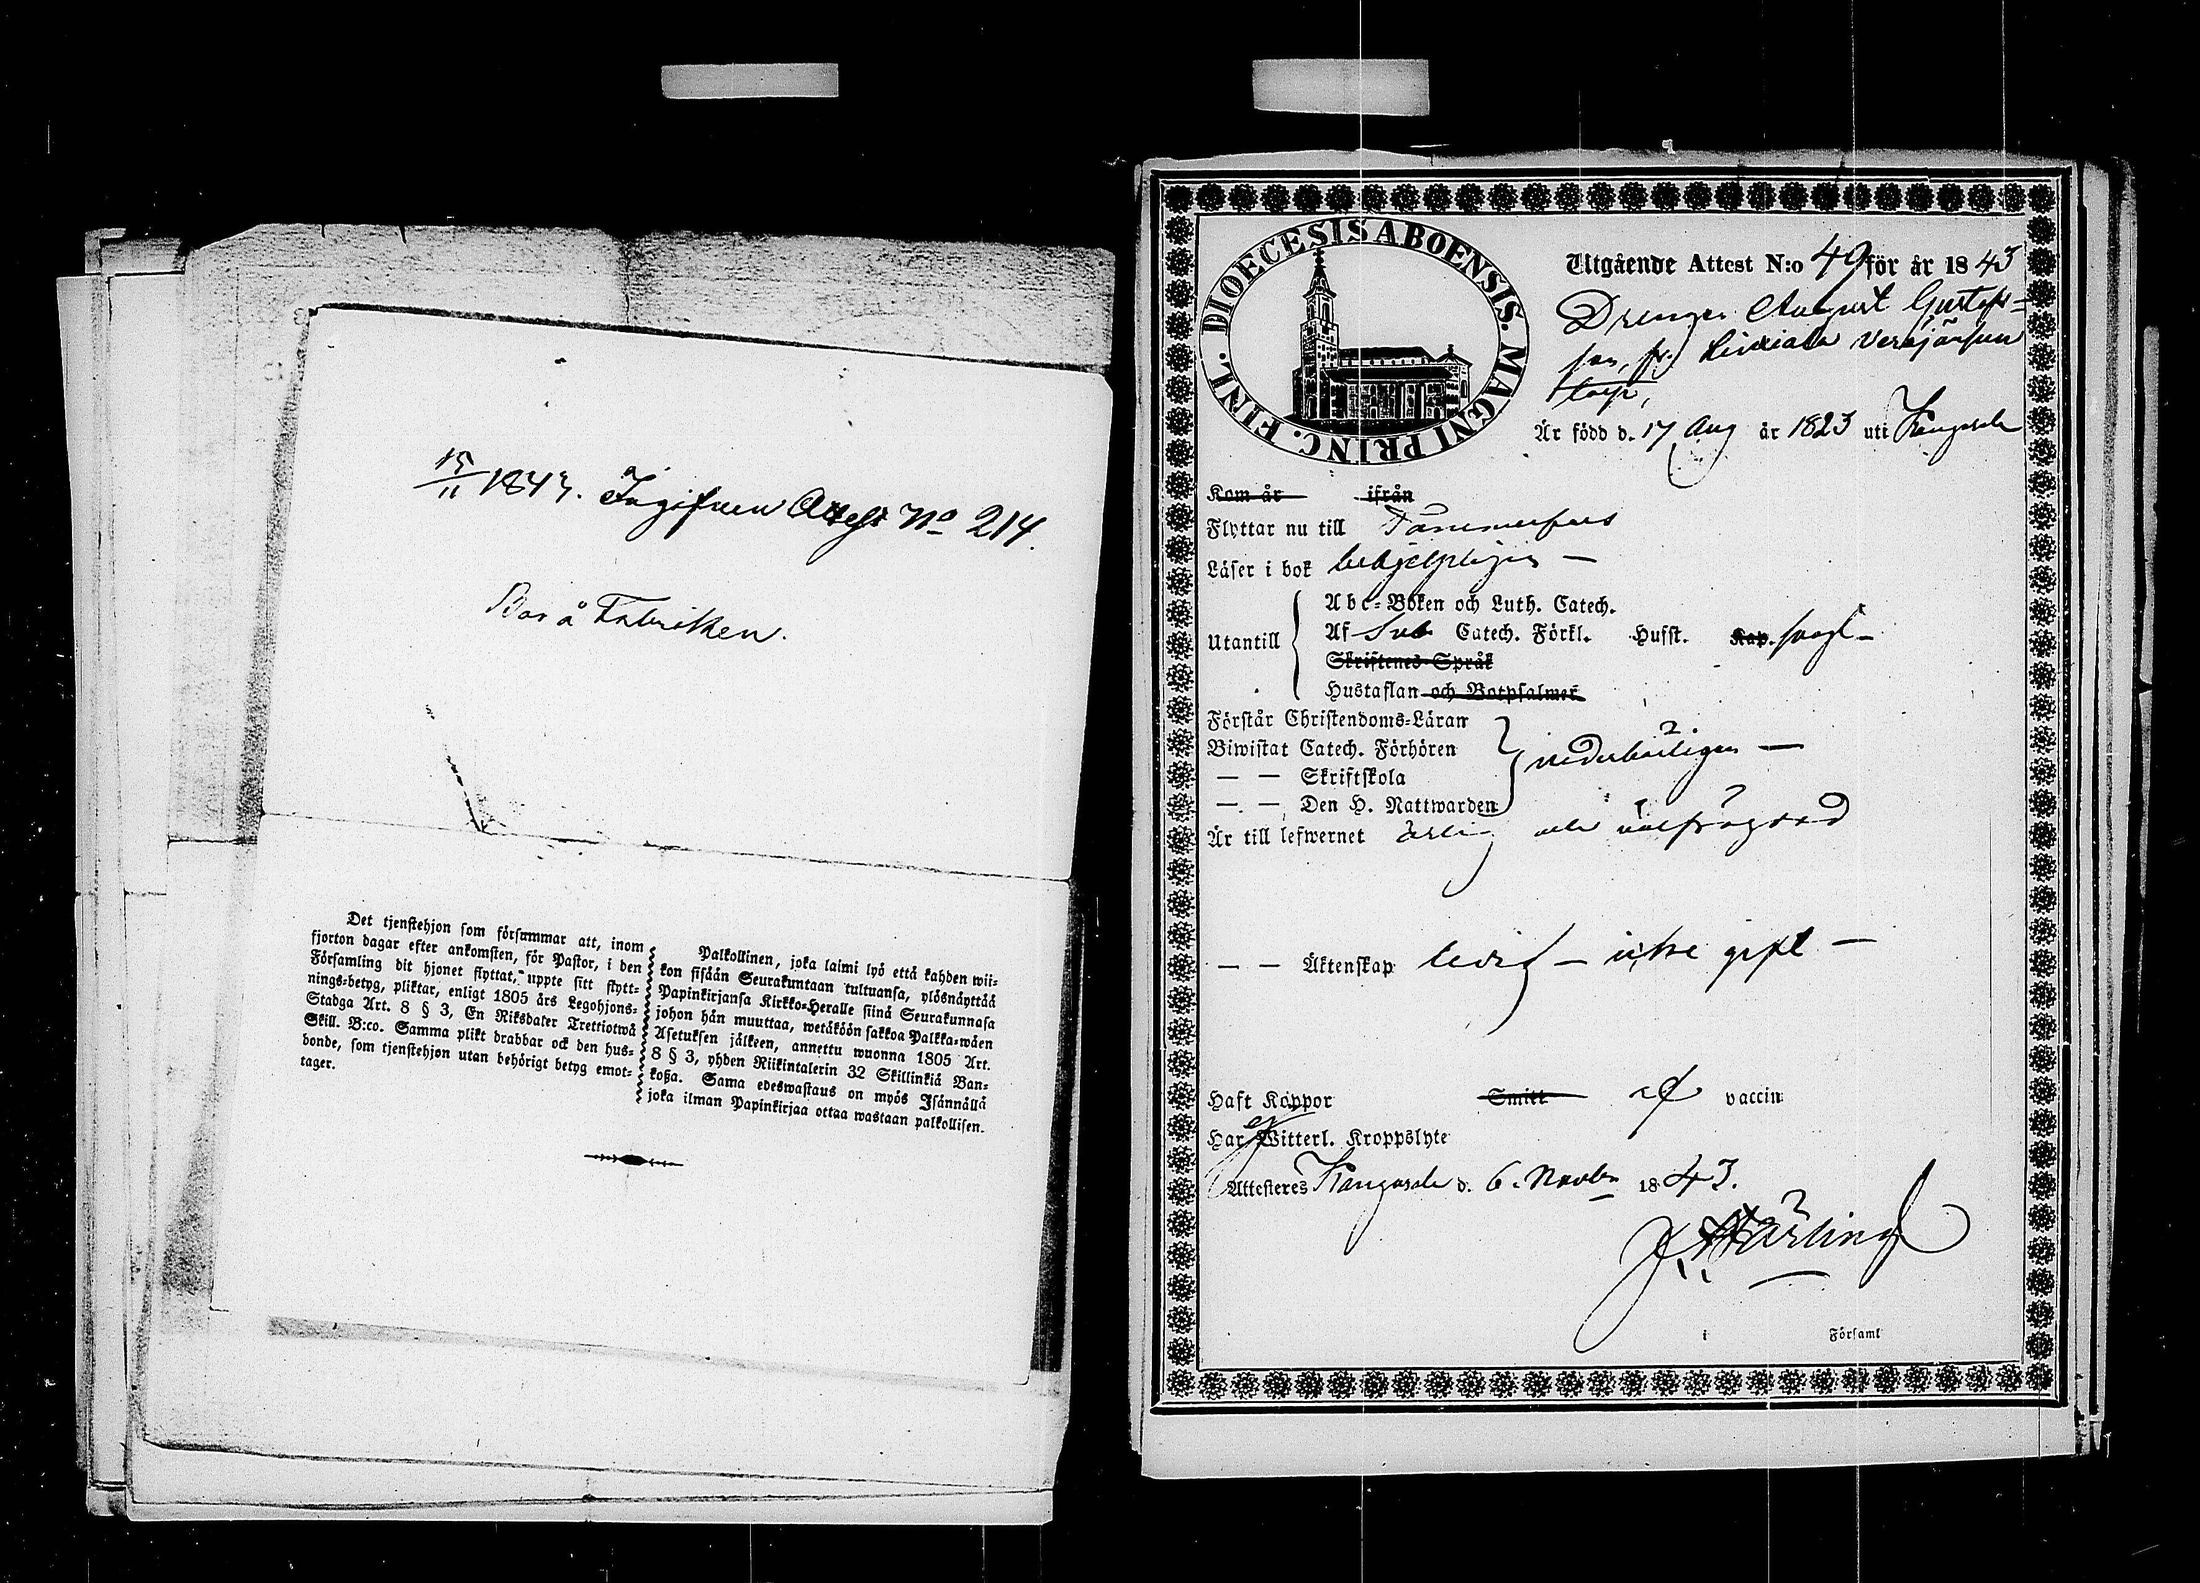 15/11 1843. Ingifven Attest No 214.
Bor å Fabriken.
Det tjenstehjon som försummar att, inom
fjorton dagar efter ankomsten, för Pastor, i den
Församling dit hjonet flyttat, uppte sitt flytt-
nings-betyg, pliktar, enligt 1805 års Legohjons-
Stadga Art. 8 § 3, En Riksdaler Trettiotwå
Skill. B:co. Samma plikt drabbar ock den hus-
bonde, som tjenstehjon utan behörigt betyg emot-
tager.
Palkollinen, joka laimi lyö että kahden wii-
kon sisään Seurakuntaan tultuansa, ylösnäyttää
Papinkirjansa Kirkko-Heralle siinä Seurakunnasa
johon hän muuttaa, wetäköön sakkoa Palkka-wäen
Asetuksen jälkeen, annettu wuonna 1805 Art.
8 § 3, yhden Riikintalerin 32 Skillinkiä Ban-
koßa. Sama edeswastaus on myös Isännällä
joka ilman Papinkirjaa ottaa wastaan palkollisen.
DIOECESIS ABOENSIS. MAGNI PRINC. FINL.
Utgående Attest N:o 49 för år 1843
Drengen August Gustafs-
son, fr.
torp,
Är född d. 17 Aug år 1823 uti Kangasala
Kom år ifrån
Flyttar nu till Tammerfors
Läser i bok behjelpligen —
Abc-Boken och Luth. Catech.
Utantill Af Sveb Catech. Förkl. Husst. Kap. svagt —
Skriftenes Språk
Hustaflan och Botpsalmer
Förstår Christendoms-Läran
Biwistat Catech. Förhören vederbörligen —
— — Skriftskola
— — Den H. Nattwarden
Är till lefwernet ärlig och välfrägdad
— — Äktenskap ledig — icke gift —
Haft Koppor Smitt af vaccin
Har ej Witterl. Kroppslyte
Attesteres Kangasala d. 6. Novbr 1843.
i Församl